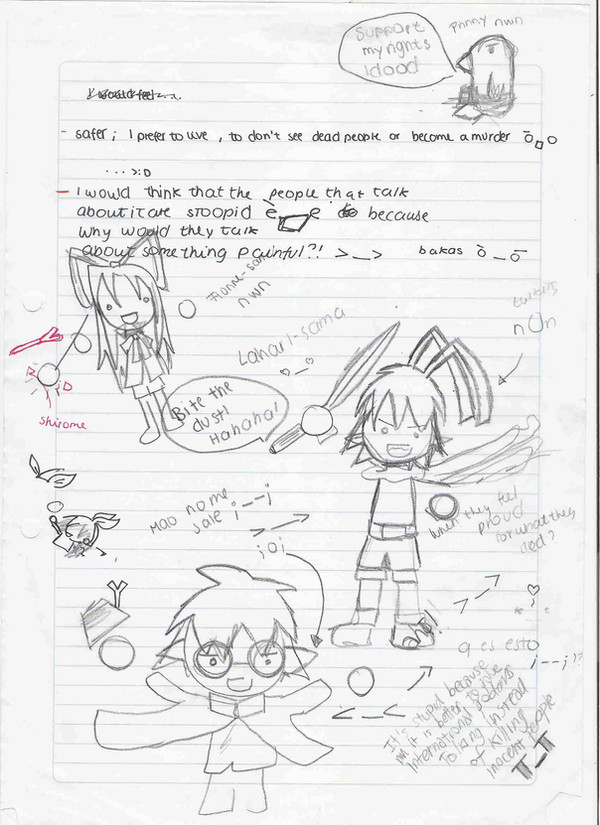 Prinny nwn
Support
my rights
!dood
I would feel...
- safer; I prefer to live, to don't see dead people or become a murder ō_o
...>:D
- I would think that the people that talk
about it are stoopid è_e because
why would they talk
about something painful?! >_> bakas ò_ō
Flonne-san
nwn
n0n
Laharl-sama
♡_♡
Bite the
dust!
Hahaha!
R D
shirome
Mao no me
sale i--j
joj
>_>
When they feel
proud
for what they
did?
>_>
q es esto
i--j??
<_<
It's stupid because
it is better to give
international soldiers
To lang instead
of killing
inocent people
T_T